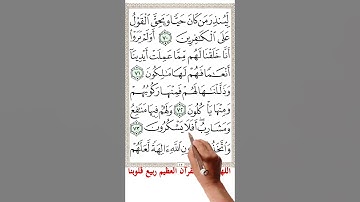 لِّيُنذِرَ مَن كَانَ حَيًّا وَيَحِقَّ ٱلْقَوْلُ
عَلَى ٱلْكَٰفِرِينَ ٧٠ أَوَلَمْ يَرَوْا۟
أَنَّا خَلَقْنَا لَهُم مِّمَّا عَمِلَتْ أَيْدِينَآ
أَنْعَٰمًا فَهُمْ لَهَا مَٰلِكُونَ ٧١
وَذَلَّلْنَٰهَا لَهُمْ فَمِنْهَا رَكُوبُهُمْ
وَمِنْهَا يَأْكُلُونَ ٧٢ وَلَهُمْ فِيهَا مَنَٰفِعُ
وَمَشَارِبُ أَفَلَا يَشْكُرُونَ ٧٣
وَٱتَّخَذُ ونِ ٱللَّهِ ءَالِهَةً لَّعَلَّهُمْ
اللهم قرآن العظيم ربيع قلوبنا